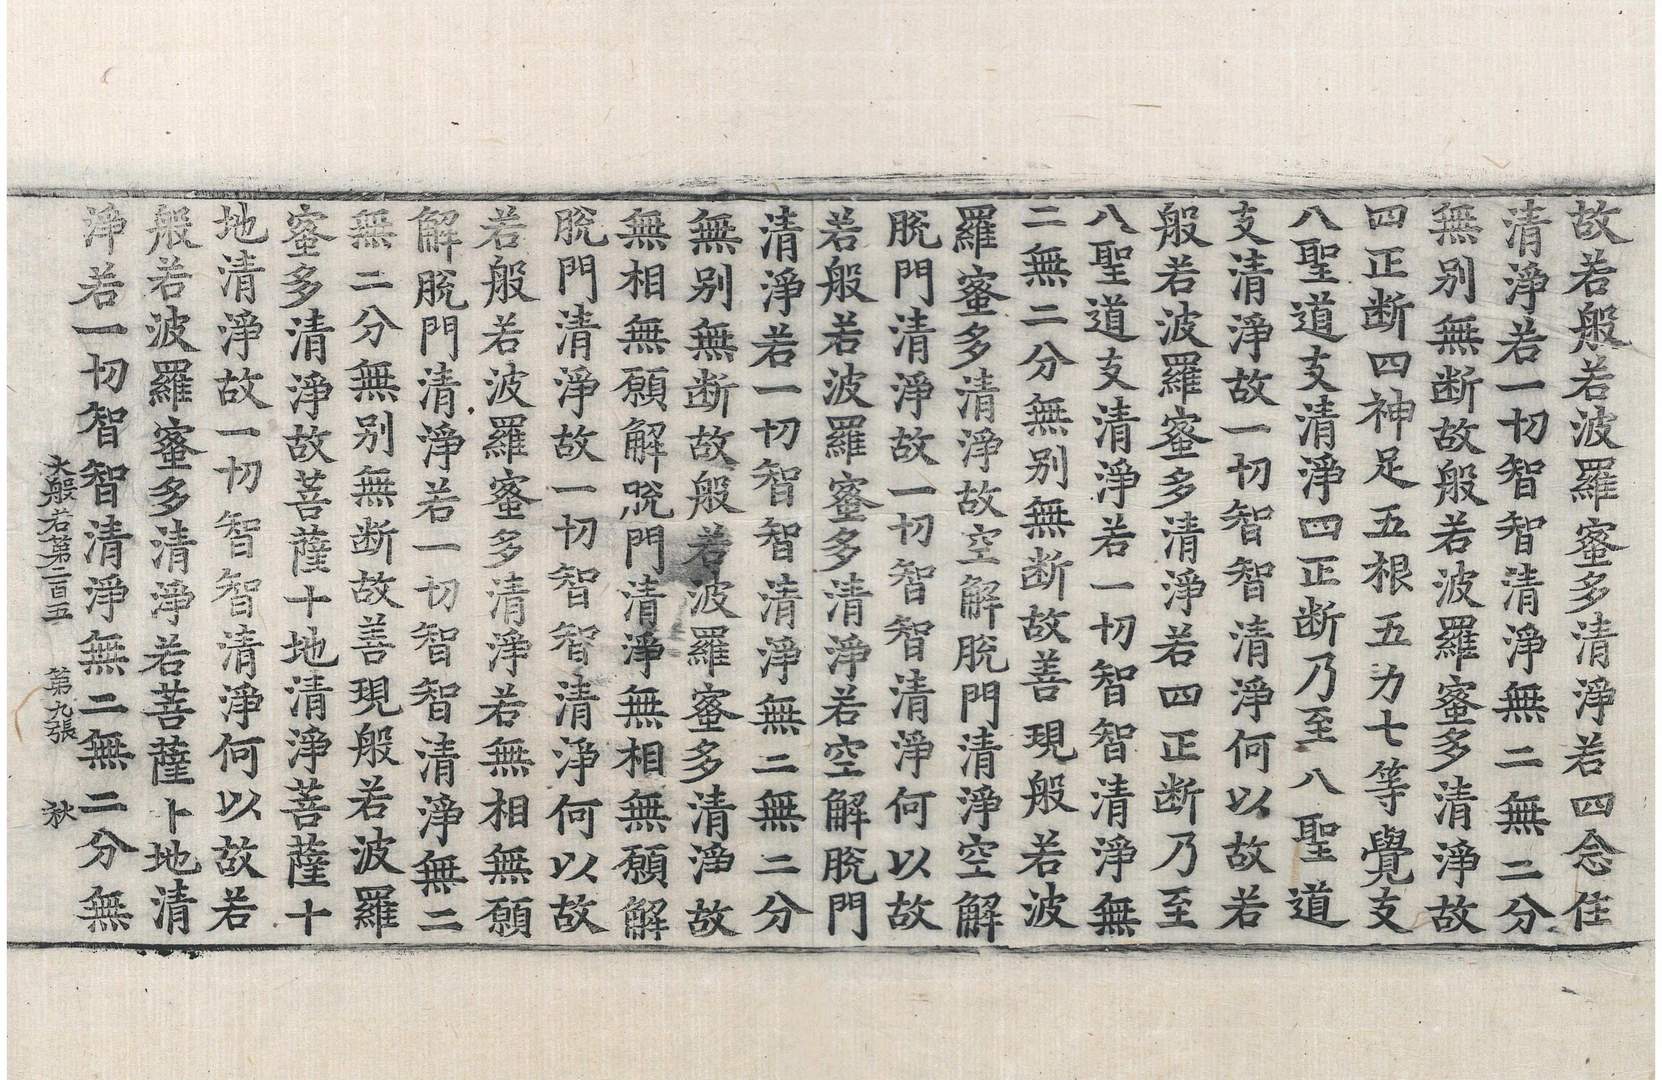 故若般若波羅蜜多清淨若四念住
清淨若一切智智清淨無二無二分
無別無断故般若波羅蜜多清淨故
四正断四神足五根五力七等覺支
八聖道支清淨四正断乃至八聖道
支清淨故一切智智清淨何以故若
般若波羅蜜多清淨若四正断乃至
八聖道支清淨若一切智智清淨無
二無二分無別無断故善現般若波
羅蜜多清淨故空解脫門清淨空解
脫門清淨故一切智智清淨何以故
若般若波羅蜜多清淨若空解脫門
清淨若一切智智清淨無二無二分
無別無断故般若波羅蜜多清淨故
無相無願解脫門清淨無相無願解
脫門清淨故一切智智清淨何以故
若般若波羅蜜多清淨若無相無願
解脫門清淨若一切智智清淨無二
無二分無別無断故善現般若波羅
蜜多清淨故菩薩十地清淨菩薩十
地清淨故一切智智清淨何以故若
般若波羅蜜多清淨若菩薩十地清
淨若一切智智清淨無二無二分無
大般若第二百五 第九張 秋